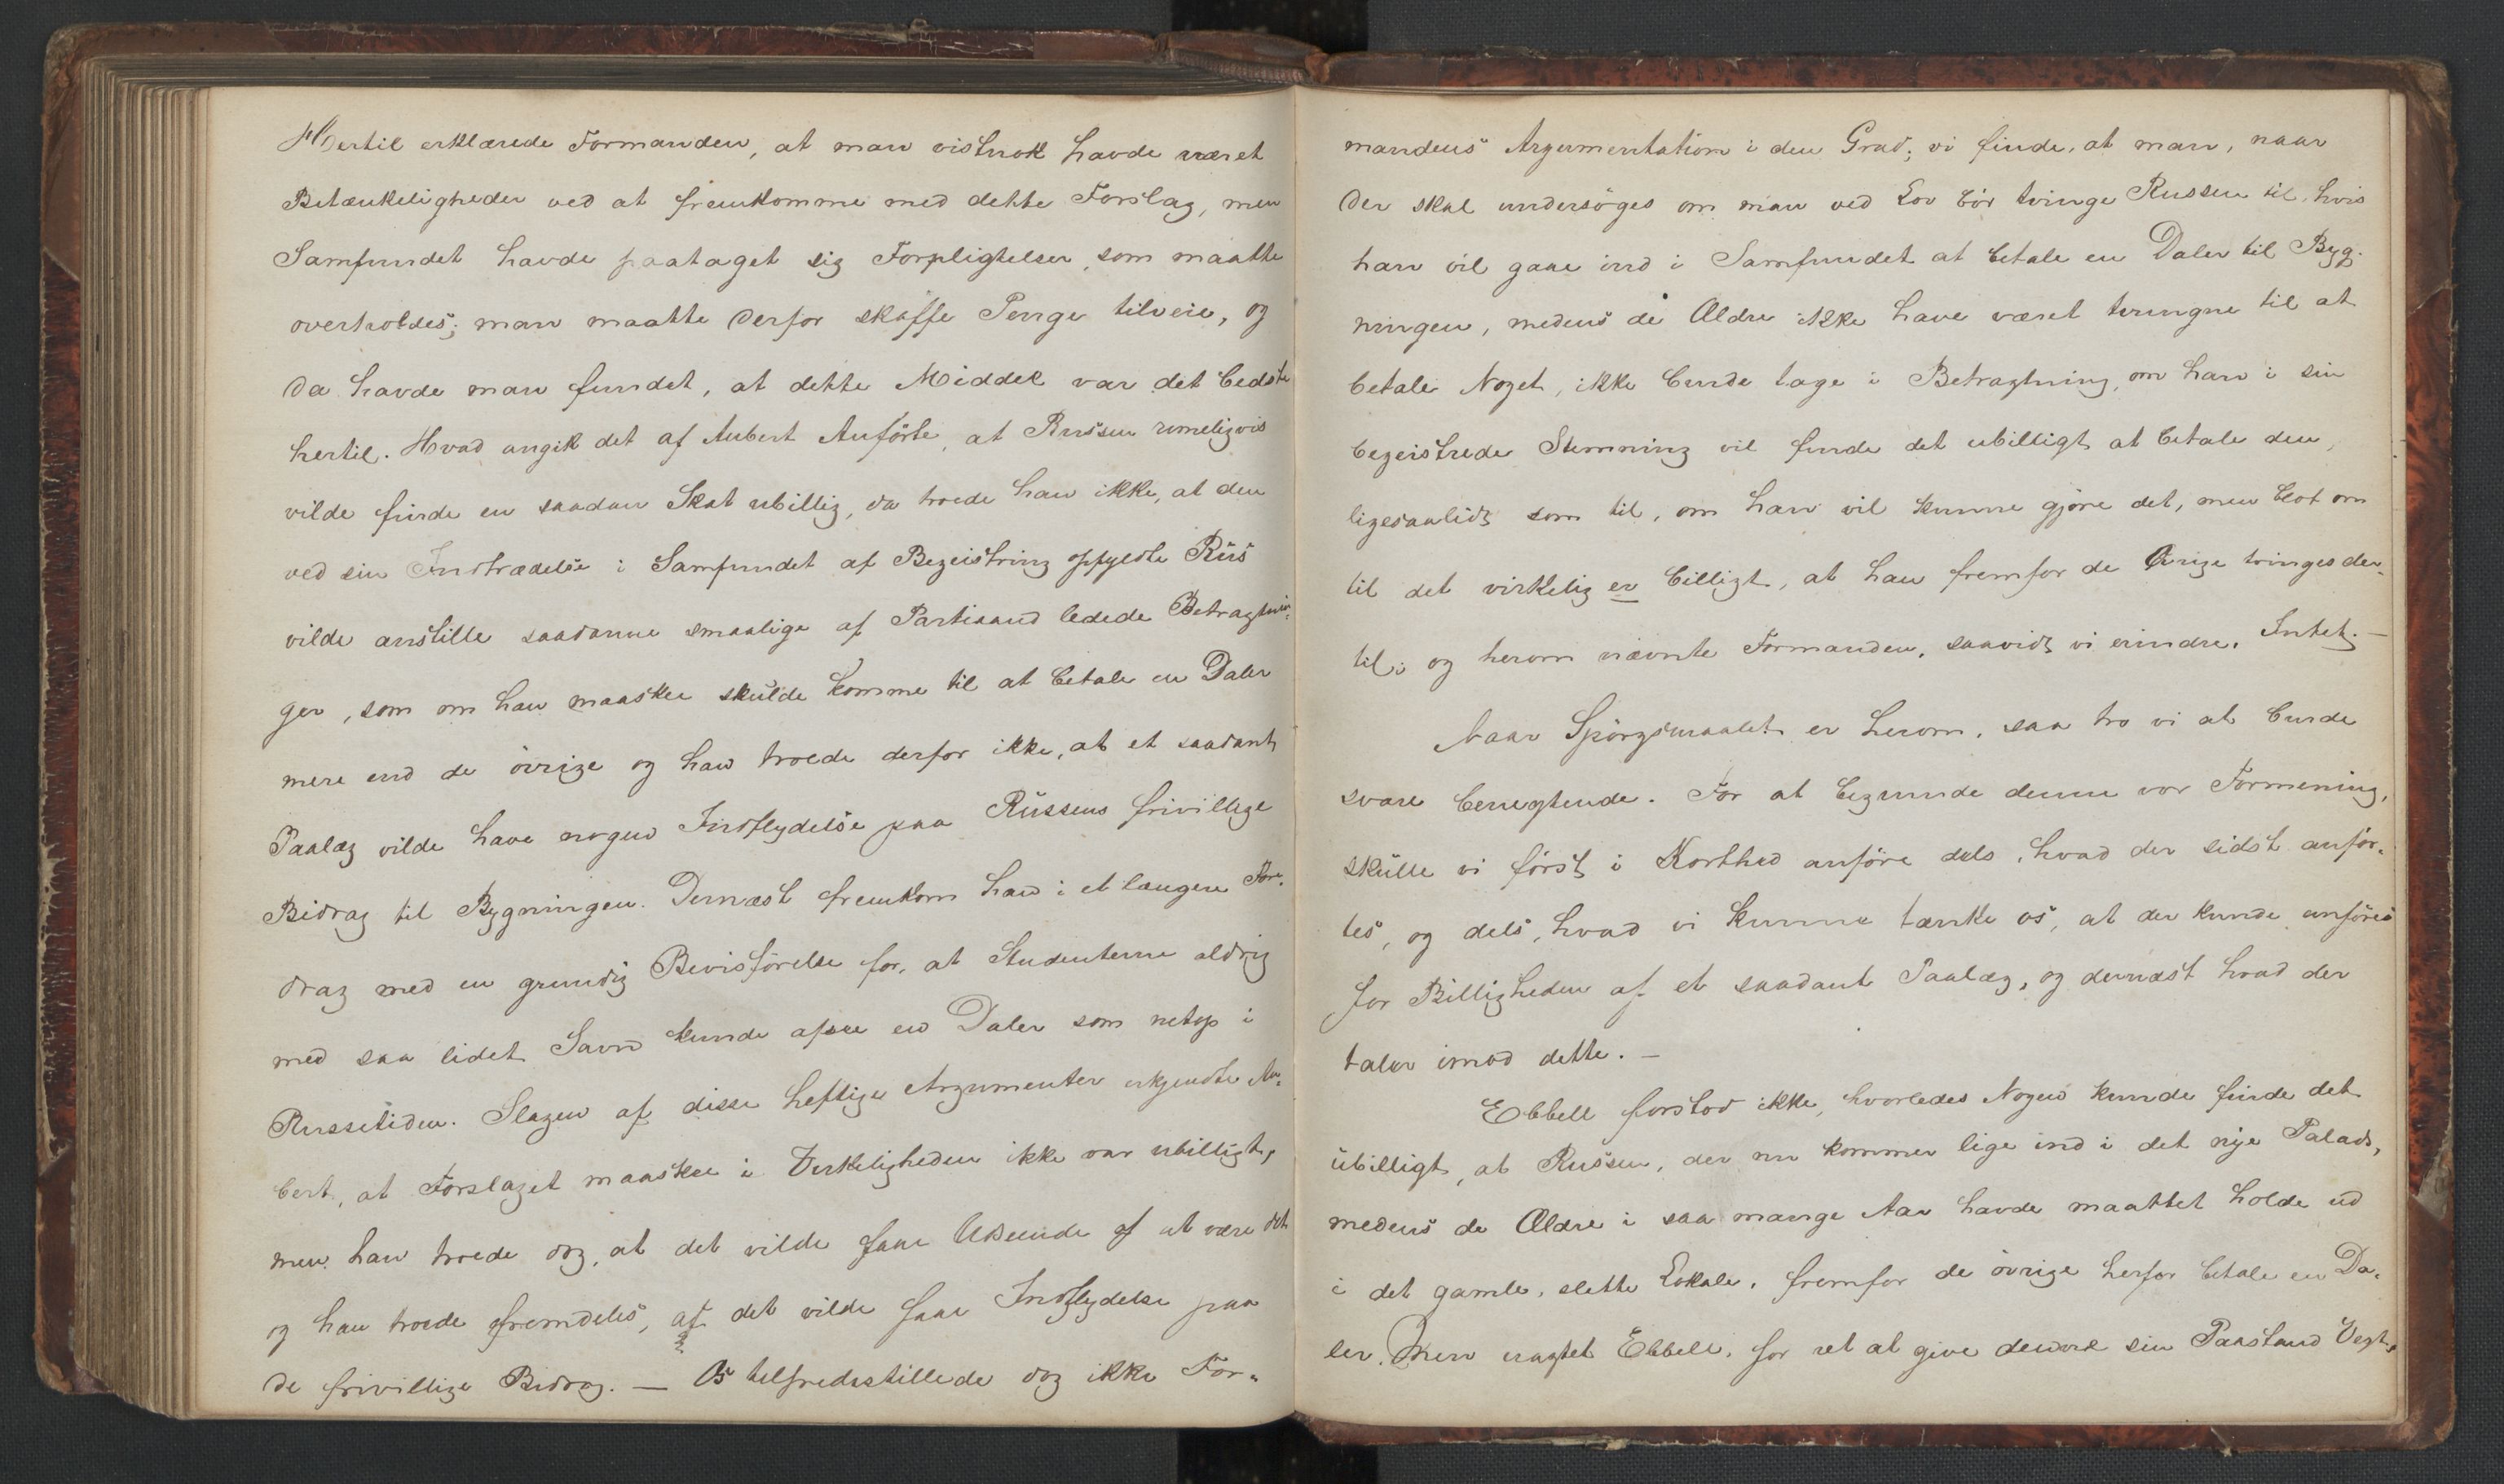 Hertil erklærede Formanden, at man vistnok havde næret
Betænkeligheder ved at fremkomme med dette Forslag, men
Samfundet havde paataget sig Forpligtelser, som maatte
overholdes; man maatte derfor skaffe Penge tilveie, og
da havde man fundet, at dette Middel var det bedste
hertil. Hvad angik det af Aubert Anförte, at Russen rimeligvis
vilde finde en saadan Skat ubillig, da troede han ikke, at den
ved sin Indtrædelse i Samfundet af Begeistring opfyldte Rus
vilde anstille saadanne smaalige af Partiaand ledede Betragtnin-
ger, som om han maaskee skulde komme til at betale en Daler
mere end de övrige og han troede derfor ikke, at et saadant
Paalæg vilde have nogen Indflydelse paa Russens frivillige
Bidrag til Bygningen. Dernæst fremkom han i et længere Fore-
drag med en grundig Bevisförelse for, at Studenterne aldrig
med saa lidet Savn kunde afsee en Daler som netop i
Russetiden. Slagen af disse heftige Argumenter erkjendte Au-
bert, at Forslaget maaskee i Virkeligheden ikke var ubilligt,
men han troede dog, at det vilde faae Udseende af at være det
og han troede fremdeles, at det vilde faae Indflydelse paa
de frivillige Bidrag. — Os tilfredsstillede dog ikke For-
mandens Argumentation i den Grad; vi finde, at man, naar
der skal undersöges om man ved Lov bör tvinge Russen til, hvis
han vil gaae ind i Samfundet at betale en Daler til Byg-
ningen, medens de Ældre ikke have været tvungne til at
betale Noget, ikke burde tage i Betragtning, om han i sin
begeistrede Stemning vil finde det ubilligt at betale den,
ligesaalidt som til, om han vil kunne gjöre det, men blot om
til det virkelig er billigt, at han fremfor de Övrige tvinges der-
til; og herom nævnte Formanden, saavidt vi erindre, Intet. —
Naar Spörgsmaalet er herom, saa tro vi at burde
svare benegtende. For at begrunde denne vor Formening,
skulle vi först i Korthed anföre dels, hvad der sidst anför-
tes, og dels, hvad vi kunne tænke os, at der kunde anföres
for Billigheden af et saadant Paalæg, og dernæst hvad der
taler imod dette. —
Ebbell forstod ikke, hvorledes Nogen kunde finde det
ubilligt, at Russen, der nu kommer lige ind i det nye Palads,
medens de Ældre i saa mange Aar havde maattet holde ud
i det gamle, slette Lokale, fremfor de övrige herfor betale en Da-
ler. Men uagtet Ebbell, for ret at give denne sin Paastand Vegt,